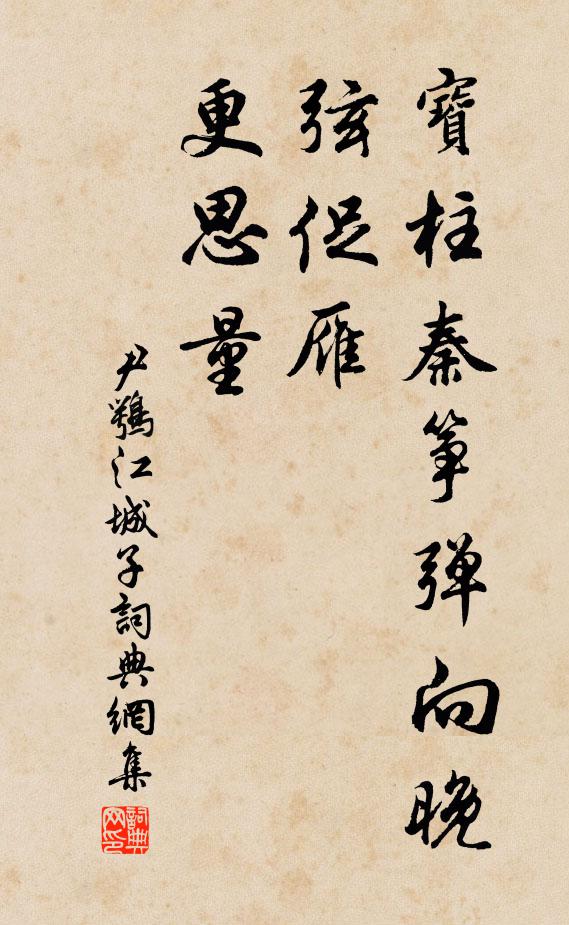 寶柱秦箏彈向晚
弦促雁
更思量
尹鶚江城子詞典網集
詞典网印